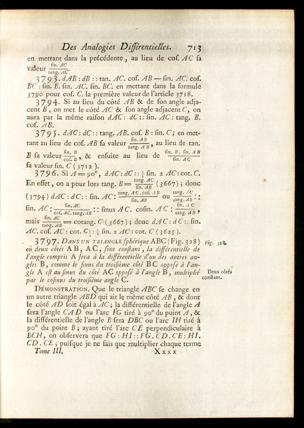 Des Analogies Différentielles. 713
en mettant dans la précédente, au lieu de cos. AC sa
valeur sin. AC / tang. AC
3793. dAB : dB :: tan. AC. cos. AB — sin. AC. cos.
BC : sin. B. sin. AC. sin. BC. en mettant dans la formule
3790 pour cos. C. la première valeur de l'article 3718.
3794. Si au lieu du côté AB & de son angle adja-
cent B, on met le côté AC & son angle adjacent C, on
aura par la même raison dAC : dC :: sin. AC : tang. B.
cos. AB.
3795. dAC : dC :: tang. AB. cos. B : sin. C; en met-
tant au lieu de cos. AB sa valeur sin. AB / tang. AB, au lieu de tan.
B sa valeur sin. B / cos. B, & ensuite au lieu de sin. B. sin. AB / sin. AC
sa valeur sin. C (3712).
3796. Si A = 90°, dAC : dC :: ½ sin. 2 AC : cot. C.
En effet, on a pour lors tang. B = tang. AC / sin. AB (3667); donc
(3794) dAC : dC :: sin. AC :
mais
AC. cot. AC : cot. C :: ½ sin. 2 AC : cot. C (3625).
3797. DANS UN TRIANGLE sphérique ABC (Fig. 328)
où deux côtés AB, AC, sont constans, la différentielle de
l'angle compris A sera à la différentielle d'un des autres an-
gles B, comme le sinus du troisième côté BC opposé à l'an-
gle A est au sinus du côté AC opposé à l'angle B, multiplié
par le cosinus du troisième angle C.
Fig. 328.
Deux côtés
constans.
DÉMONSTRATION. Que le triangle ABC se change en
un autre triangle ABD qui ait le même côté AB, & dont
le côté AD soit égal à AC; la différentielle de l'angle A
sera l'angle CAD ou l'arc FG tiré à 90° du point A, &
la différentielle de l'angle B sera DBC ou l'arc IH tiré à
90° du point B; ayant tiré l'arc CE perpendiculaire à
BCH, on observera que FG : HI :: FG. CD. CE : HI.
CD. CE; puisque je ne fais que multiplier chaque terme
Tome III. Xxxx